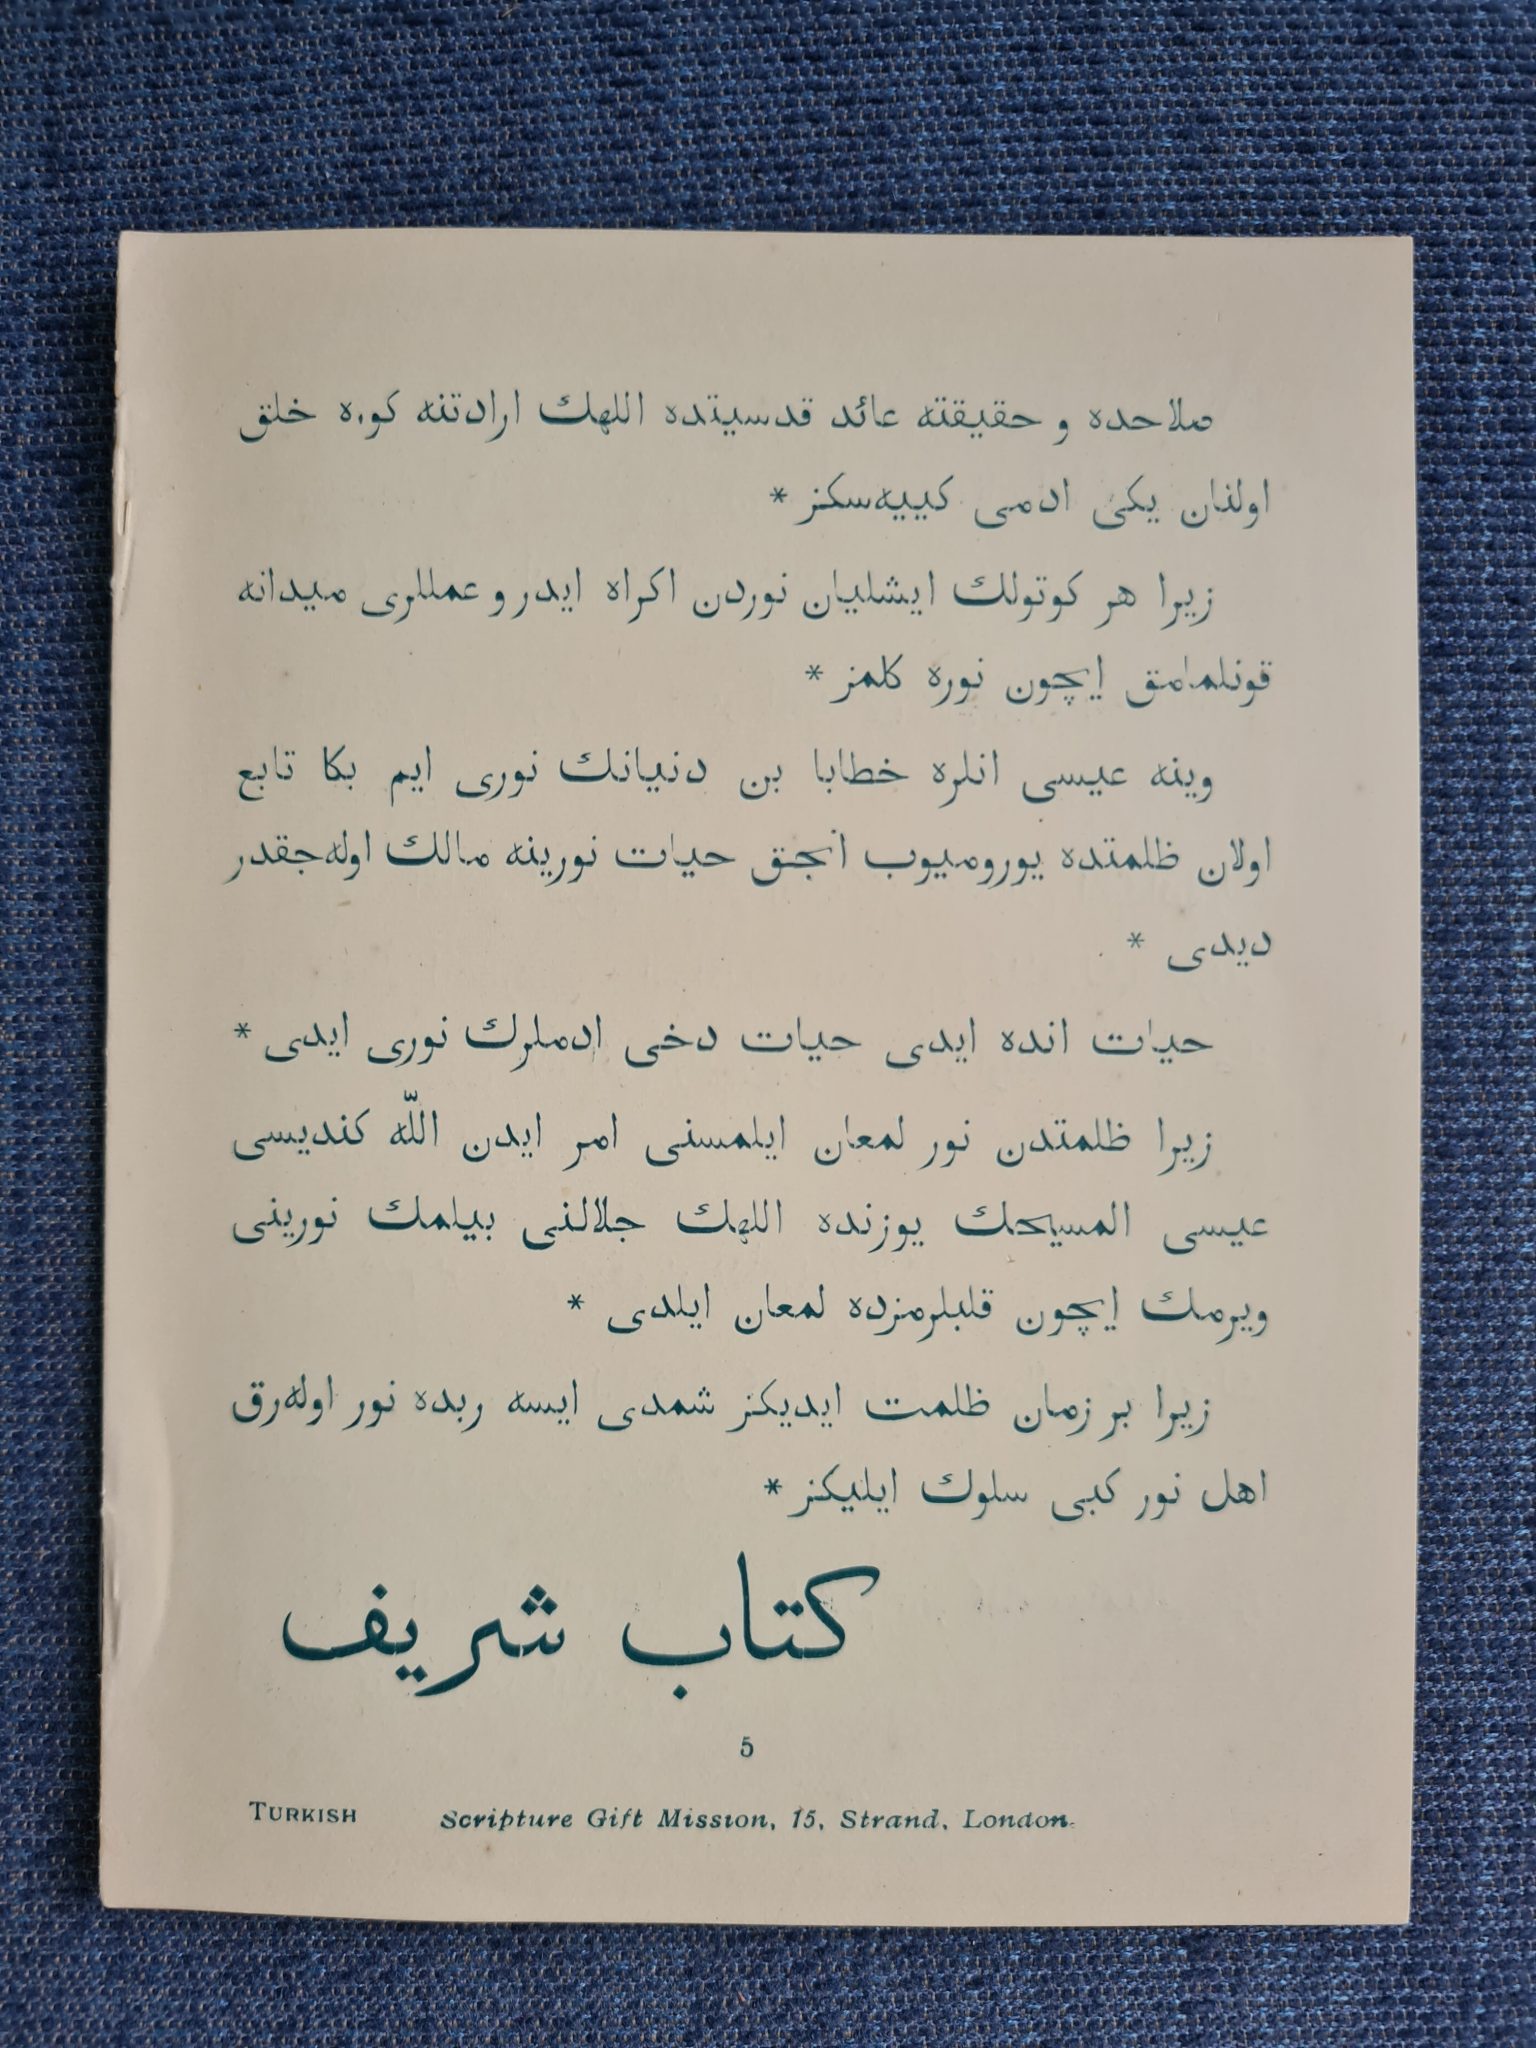 صلاحده و حقيقته عائد قدسيتده اللهك ارادتنه كوره خلق
اولنان يكى ادمى كييه‌سكز *
زيرا هر كوتولك ايشليان نوردن اكراه ايدر و عمللرى ميدانه
قونلمامق ايچون نوره كلمز *
وينه عيسى انلره خطابا بن دنيانك نورى ايم بكا تابع
اولان ظلمتده يوروميوب انجق حيات نورينه مالك اوله‌جقدر
ديدى *
حيات انده ايدى حيات دخى ادملرك نورى ايدى *
زيرا ظلمتدن نور لمعان ايلمسنى امر ايدن اللّه كنديسى
عيسى المسيحك يوزنده اللهك جلالنى بيلمك نورينى
ويرمك ايچون قلبلرمزده لمعان ايلدى *
زيرا بر زمان ظلمت ايديكز شمدى ايسه ربده نور اوله‌رق
اهل نور كبى سلوك ايليكز *
كتاب شريف
5
TURKISH Scripture Gift Mission, 15, Strand, London.